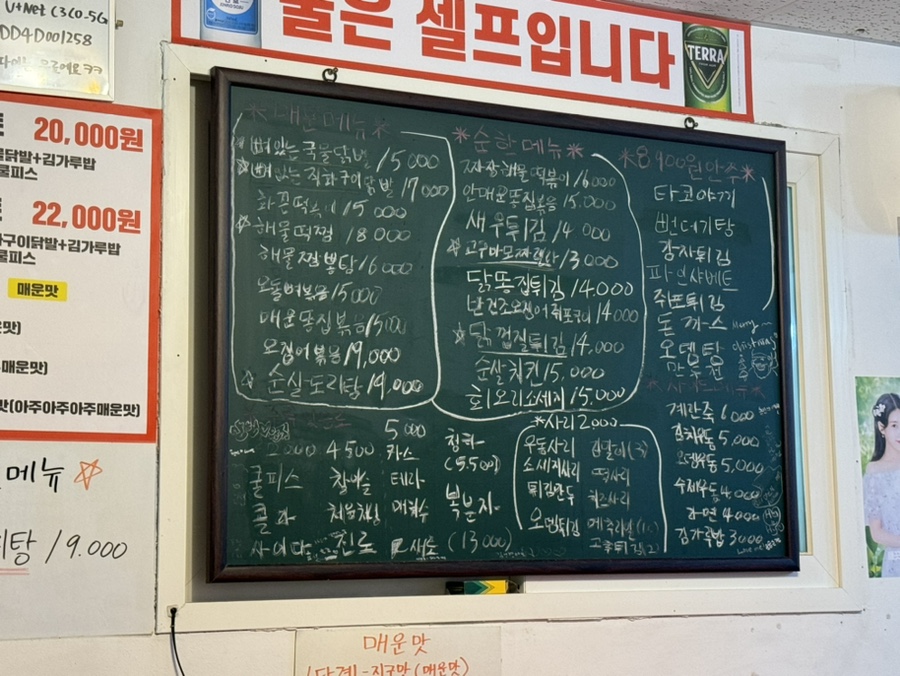 U+Net C3C0.5G
DD4D001258
물은 셀프입니다
TERRA
20,000원
닭발+김가루밥
쿨피스
22,000원
구이닭발+김가루밥
쿨피스
매운맛
매운맛)
맛(아주아주아주매운맛)
메뉴
탕 19.000
*매운메뉴*
뼈있는 국물닭발 15000
뼈있는 직화구이닭발 17000
화끈떡볶이 15000
해물떡찜 18000
해물찜뽕탕 16000
오돌뼈볶음 15000
매운똥집볶음 15000
오징어볶음 19,000
순살도리탕 19,000
*순한메뉴*
짜장해물떡볶이 16000
안매운똥집볶음 15.000
새우튀김 14000
고구마모짜렐라 13000
닭똥집튀김 14.000
반건조오징어쥐포구이 14000
닭껍질튀김 14.000
순살치킨 15,000
훈제오리소세지 15.000
*8,900원안주*
타코야끼
번데기탕
감자튀김
파인샤베트
쥐포튀김
돈까스
오뎅탕
만두전
Merry
christmas
계란죽 6000
김치우동 5,000
오뎅우동 5,000
수제우동 4000
라면 4000
김가루밥 3000
2000
쿨피스
콜라
사이다
4500
참이슬
처음처럼
진로
5000
카스
테라
새로
청하
(5.500)
복분자
(13000)
*사리 2000
우동사리
소세지사리
튀김만두
오뎅튀김
떡사리
치즈사리
메추리알(10)
매운맛
1단계-지구맛(매운맛)